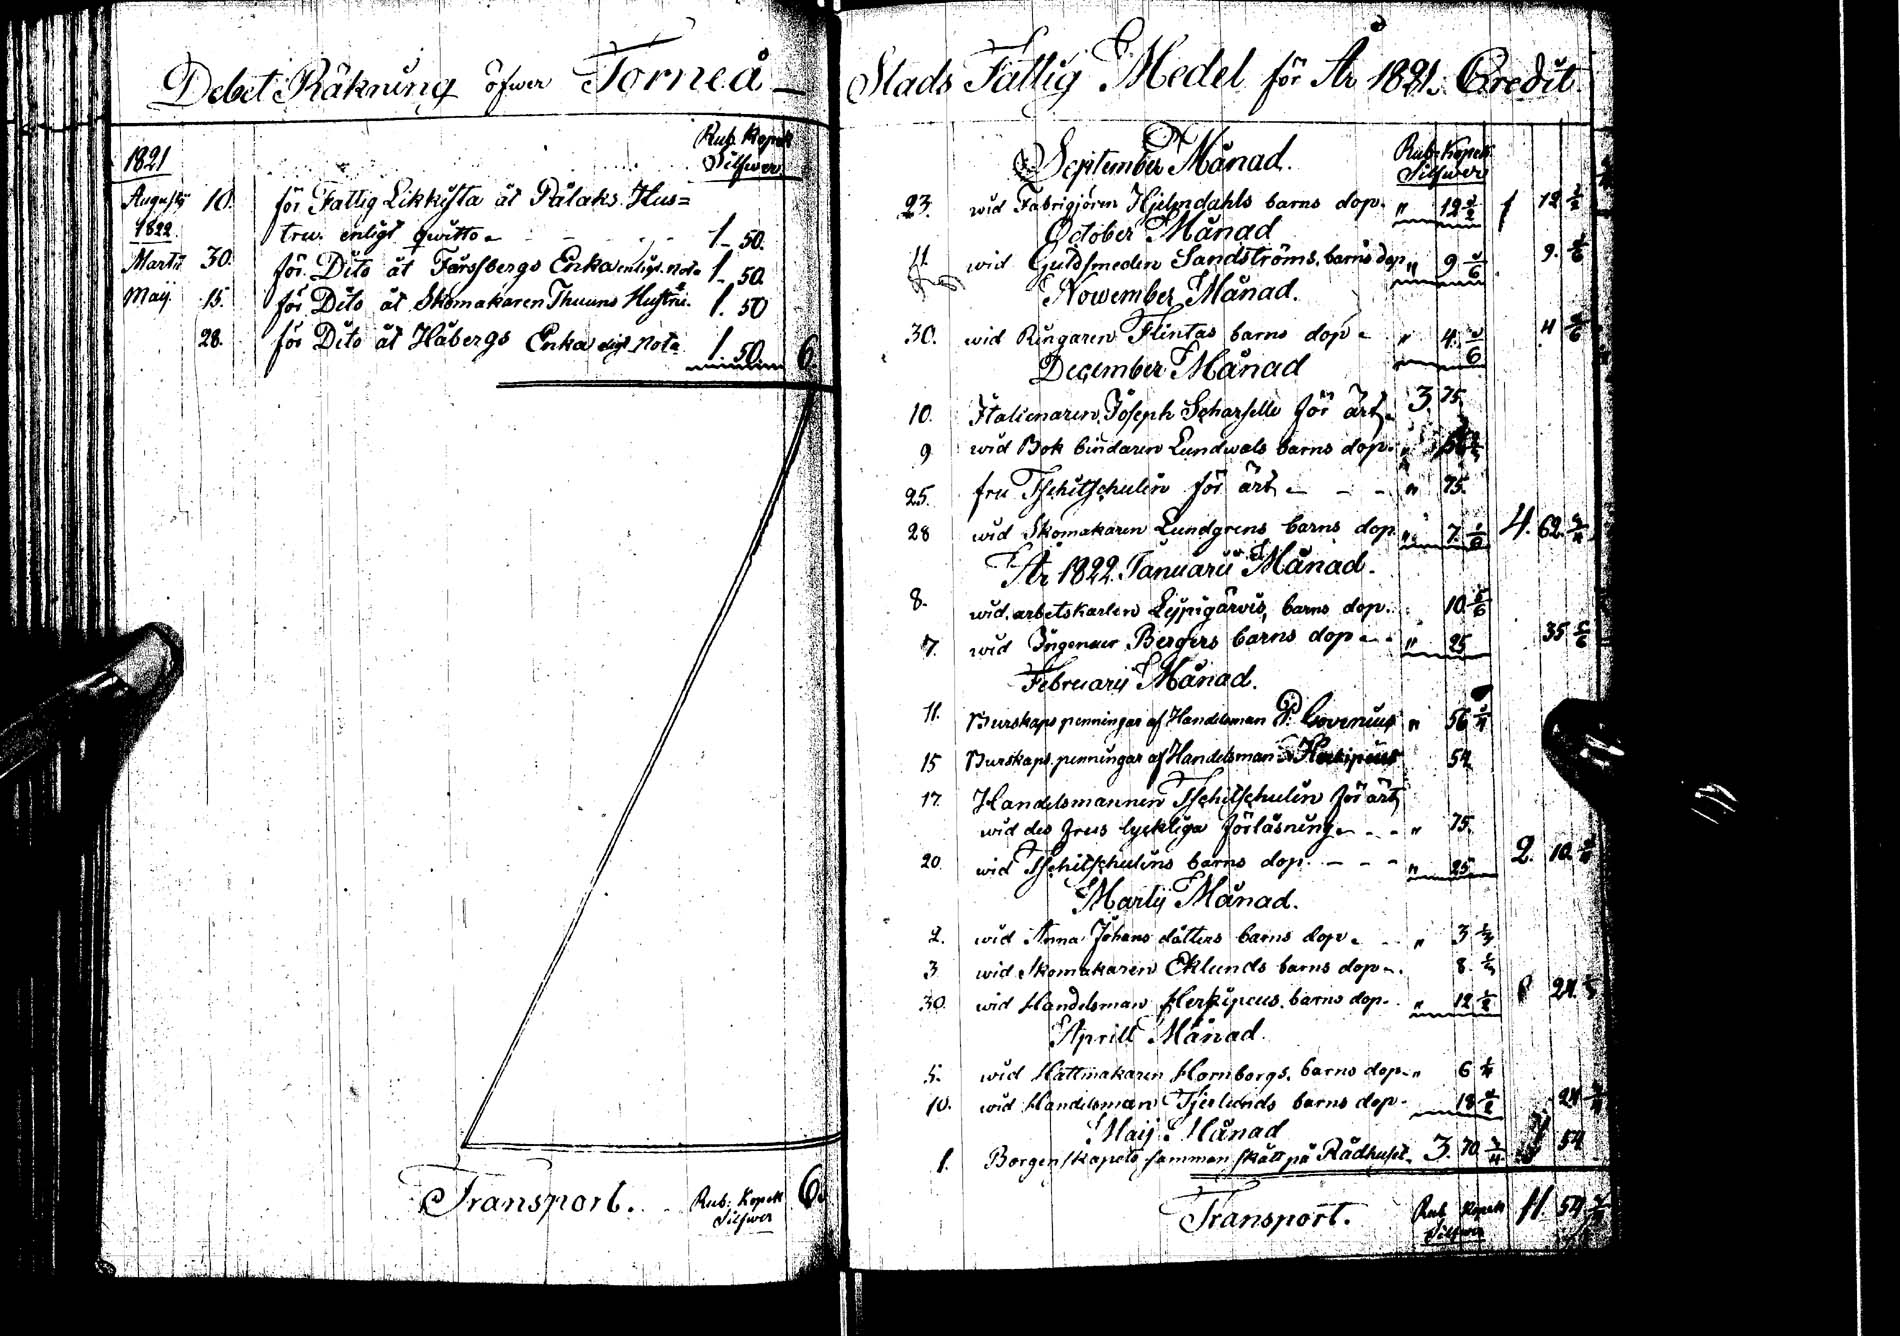 Debet Räkning öfwer Torneå
1821 Rub. Kopek
Silfwer
Augusty 10. för Fattig Likkista åt Pålaks Hus=
1822 tru. enligt qwitto 1. 50.
Martii 30. för Dito åt Forssbergs Enka enligt nota 1. 50.
Maij 15. för Dito åt Skomakaren Thuuns Hustru 1. 50
28. för Dito åt Håbergs Enka nota 1. 50. 6.
Transport. Rub. Kopek 6.
Silfwer
Stads Fattig Medel för År 1821. Credit
September Månad. Rub. Kopek
Silfwer
23. wid Hjelmdahls barns dop. " 12 1/2 12 1/2
October Månad
11. wid Guldsmeden Sandströms barns dop " 9 1/6 9. 1/6
November Månad.
30. wid Ringaren Flintas barns dop " 4. 1/6 4 1/6
December Månad
10. Italienaren Joseph för ärt 3. 75.
9 wid Bok bindaren Lundwals barns dop. "
25. fru Tschitschulin för ärt " 75.
28 wid Skomakaren Lundgrens barns dop " 7. 4. 62.
År 1822. Januarii Månad.
8. wid arbetskarlen barns dop. 10. 5/6
7. wid Bergers barns dop " 25 35 5/6
Februarij Månad.
11. Burskaps penningar af Handelsman " 56 1/4
15 Burskaps penningar af Handelsman 54
17. Handelsmannen Tschitschulin för ärt
wid des frus lyckliga förlåsning " 75.
20. wid Tschitschulins barns dop. " 25 2. 10. 1/4
Martij Månad.
2. wid Anna Johans dotters barns dop. " 3 1/3
3 wid Skomakaren Eklunds barns dop. 8. 1/3
30. wid Handelsman Herkepeus barns dop. " 12 1/2 24.
Aprill Månad.
5. wid Hattmakaren Hornborgs barns dop. " 6 1/4
10. wid Handelsman barns dop. 18 1/2 24
Maij Månad
1. Borgenskapets samman skått på Rådhuset. 3. 70. 54
Transport. Rub Kopek 11. 54
Silfwer